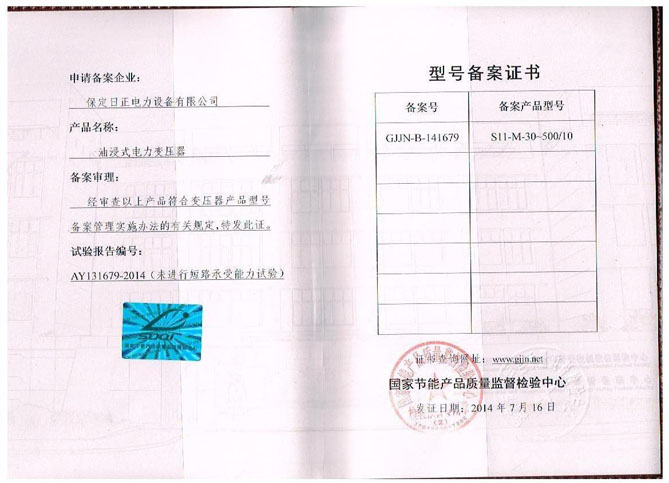 申请备案企业:
保定日正电力设备有限公司
产品名称:
油浸式电力变压器
备案审理:
经审查以上产品符合变压器产品型号
备案管理实施办法的有关规定,特发此证。
试验报告编号:
AY131679-2014(未进行短路承受能力试验)
SDQI
型号备案证书
备案号
备案产品型号
GJJN-B-141679
S11-M-30~500/10
证书查询网址: www.gjjn.net
国家节能产品质量监督检验中心
发证日期: 2014 年 7 月 16 日